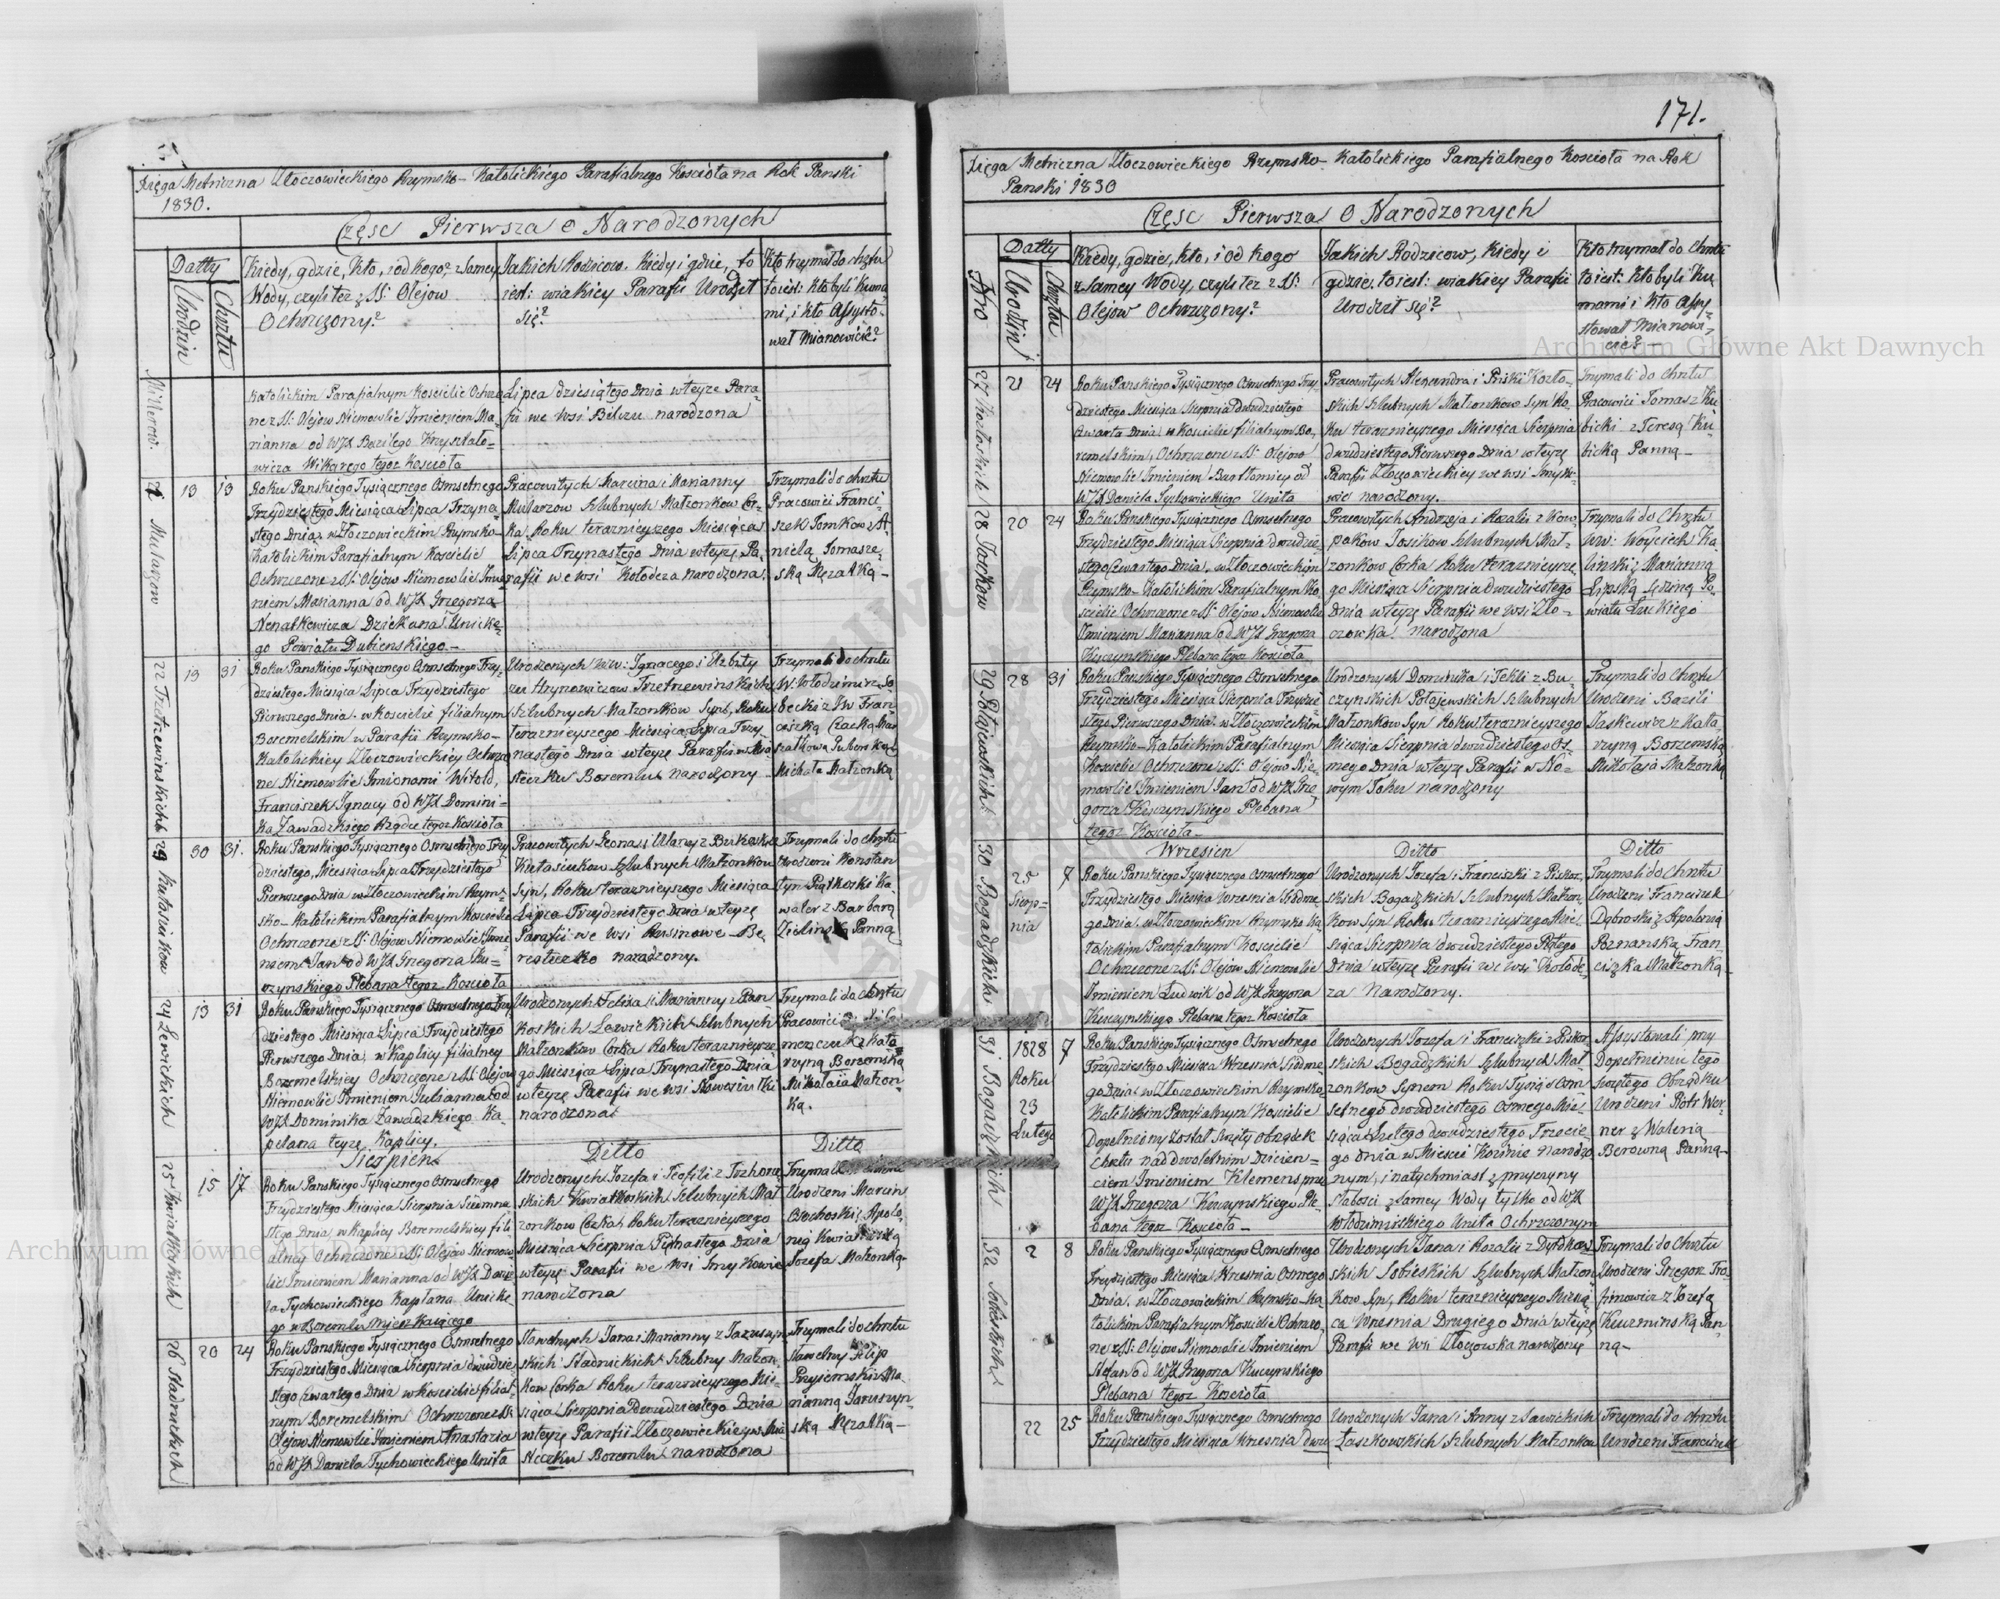 171.
Księga Metryczna Złoczowieckiego Rzymsko-Katolickiego Parafialnego Kościoła na Rok Panski
1830.
Częsc Pierwsza o Narodzonych
Datty
Urodzin
Chrztu
Kiedy, gdzie, kto, i od kogo? z samey
Wody, czyli też z SS: Olejow
Ochrzczony?
Jakich Rodzicow. Kiedy i gdzie, to
iest: w iakiey Parafii Urodził
się?
Kto trzymał do chrztu
to iest: kto byli Kuma
mi, i kto Assysto-
wał mianowicie?
Katolickim Parafialnym Kosciele Ochrzczo
ne z SS: Olejow Niemowle Imieniem Ma-
rianna od WJX Bazilego Kryształo-
wicza Wikarego tegoż Kościoła
Lipca dziesiątego Dnia w teyże Para-
fii we Wsi narodzona
13 13
Roku Panskiego Tysiącznego Osmsetnego
Trzydziestego Miesiąca Lipca Trzyna-
stego Dnia w Złoczowieckim Rzymsko-
Katolickim Parafialnym Kosciele
Ochrzczone z SS: Olejow Niemowle Imie
niem Marianna od WJX Grzegorza
Dziekana Unicke-
go Powiatu Dubienskiego-
Pracowitych Marcina i Marianny
Mularzow Szlubnych Małzonkow Cor-
ka, Roku terazneyszego Miesiąca
Lipca Trzynastego Dnia w teyże Pa-
rafii we wsi Kołodeza narodzona.
Trzymali do chrztu
Pracowici Franci-
szek Tomkow z A-
nielą Tomasze-
ską Męzatką-
22
13 31
Roku Panskiego Tysiącznego Osmsetnego Trzy-
dziestego Miesiąca Lipca Trzydziestego
Pierwszego Dnia. w kosciele filialnym
Boremelskim w Parafii Rzymsko-
Katolickiey Złoczowieckiey Ochrzczo
ne Niemowle Imionami Witold,
Franciszek Ignacy od WJX Domini-
ka Zawadzkiego Rządce tegoż Kościoła
Urodzonych WW: Ignacego i Elzbiety
Szlubnych Małzonkow Syn, Roku
terazneyszego Miesiąca Lipca Trzy-
nastego Dnia w teyże Parafii w Mia
steczku Boremlu narodzony
Trzymali do chrztu
W: Włodzimirz So
becki z JW Fran-
ciszką Czacką Mar
szałkową
Michała Małzonką
23
30 31.
Roku Panskiego Tysiącznego Osmsetnego Trzy
dziestego, Miesiąca Lipca Trzydziestego
Pierwszego Dnia w Złoczowieckim Rzym-
sko-Katolickim Parafialnym Kosciele
Ochrzczone z SS: Olejow Niemowle Imie
niem Jan od WJX Grzegorza Ku-
czynskiego Plebana tegoż Kościoła
Szlubnych Małzonkow
Syn, Roku terazneyszego Miesiąca
Lipca Trzydziestego Dnia w teyże
Parafii we Wsi Be-
resteczko narodzony.
Trzymali do chrztu
Urodzeni Konstan
tyn Piątkoski Ka
waler z Barbarą
Zielinską Panną
24 Lewickich
13 31
Roku Panskiego Tysiącznego Osmsetnego Trzy
dziestego Miesiąca Lipca Trzydziestego
Pierwszego Dnia, w Kaplicy filialney
Boremelskiey Ochrzczone z SS: Olejow
Niemowle Imieniem Julianna od
WJX Dominika Zawadzkiego Ka-
pelana teyże Kaplicy.
Urodzonych Felixa i Marianny z Pan
koskich Lewickich Szlubnych
Małzonkow Corka Roku terazneysze
go Miesiąca Lipca Trzynastego Dnia
w teyże Parafii we wsi Nowesiołki
narodzona
Trzymali do chrztu
Pracowici
z Kata
rzyną Boremską
Mikołaia Małzon-
ką.
Sierpien
Ditto
Ditto
25 Kwiatkoskich
15 17
Roku Panskiego Tysiącznego Osmsetnego
Trzydziestego Miesiąca Sierpnia Siedmna
stego Dnia, w Kaplicy Boremelskiey fili
alney Ochrzczone z SS: Olejow Niemow-
le Imieniem Marianna od WJX Danie
la Tychowieckiego Kapłana Unicke-
go w Boremlu mieszkaiącego
Urodzonych Jozefa i Teofili z
skich Kwiatkoskich Szlubnych Mał
zonkow Corka, Roku terazneyszego
Miesiąca Sierpnia Pietnastego Dnia
w teyże Parafii we Wsi Smykowie
narodzona
Trzymali do chrztu
Urodzeni Marcin
Osochoski z Apolo
nią Kwiatkoską
Jozefa Małzonką-
26 Stadnickich
20 24
Roku Panskiego Tysiącznego Osmsetnego
Trzydziestego Miesiąca Sierpnia dwudzie
stego Czwartego Dnia w Kosciele filial-
nym Boremelskim Ochrzczone z SS:
Olejow Niemowle Imieniem Anastazia
od WJX Daniela Tychowieckiego Unita
Sławetnych Jana i Marianny z Jaruszyn
skich Stadnickich Szlubny Małzon-
kow Corka Roku terazneyszego Mie-
siąca Sierpnia Dwudziestego Dnia
w teyże Parafii Złoczowieckiey w Mia
steczku Boremlu narodzona
Trzymali do chrztu
Sławetny Filip
Przyiemski z Ma
rianną Jaruszyn-
ską Męzatką-
Księga Metryczna Złoczowieckiego Rzymsko-Katolickiego Parafialnego Kościoła na Rok
Panski 1830
Częsc Pierwsza O Narodzonych
Nro
Datty
Urodzin
Chrztu
Kiedy, gdzie, kto, i od kogo
z samey Wody, czyli też z SS:
Olejow Ochrzczony?
Jakich Rodzicow, Kiedy i
gdzie, to iest: w iakiey Parafii
Urodził się?
Kto trzymał do chrztu
to iest: kto byli Ku
mami i kto Assy-
stował mianowi-
cie?-
27 Kozłoskich
21 24
Roku Panskiego Tysiącznego Osmsetnego Trzy
dziestego Miesiąca Sierpnia Dwudziestego
Czwartego Dnia w Kosciele filialnym Bo-
remelskim, Ochrzczone z SS: Olejow
Niemowle Imieniem Bartłomiey od
WJX Daniela Tychowieckiego Unita
Pracowitych Alexandra i Kozło-
skich Szlubnych Małzonkow Syn Ro-
ku terazneyszego Miesiąca Sierpnia
dwudziestego Pierwszego Dnia w teyże
Parafii Złoczowieckiey we wsi Smyko-
wie narodzony.
Trzymali do chrztu
Pracowici Tomasz Ku
bicki z Teresą Ku-
bicką Panną-
28
20 24
Roku Panskiego Tysiącznego Osmsetnego
Trzydziestego Miesiąca Sierpnia dwudzie-
stego Czwartego Dnia, w Złoczowieckim
Rzymsko-Katolickim Parafialnym Ko-
sciele Ochrzczone z SS: Olejow Niemowle
Imieniem Marianna od WJX Grzegorza
Kuczynskiego Plebana tegoż Kościoła
Pracowitych Andrzeja i Rozalii z Kow
pakow Szlubnych Mał-
zonkow Corka Roku terazneysze
go Miesiąca Sierpnia dwudziestego
Dnia w teyże Parafii we Wsi Zło-
czowka narodzona
Trzymali do Chrztu
WW: Woyciech Ka-
linski z Marianną
Lipską Sędziną Po-
wiatu Łuckiego
29 Połajewskich
28 31
Roku Panskiego Tysiącznego Osmsetnego
Trzydziestego Miesiąca Sierpnia Trzydzie
stego Pierwszego Dnia. w Złoczowieckim
Rzymsko-Katolickim Parafialnym
Kosciele Ochrzczone z SS: Olejow Nie-
mowle Imieniem Jan od WJX Grze
gorza Kuczynskiego Plebana
tegoż Kościoła-
Urodzonych Dominika i Tekli z Bu-
czynskich Połajewskich Szlubnych
Małzonkow Syn Roku terazneyszego
Miesiąca Sierpnia dwudziestego Os-
mego Dnia w teyże Parafii w No-
wym Toku narodzony
Trzymali do Chrztu
Urodzeni Bazili
Laskewicz z Kata
rzyną Borzemską
Mikołaja Małzonką
Wrzesien
Ditto
Ditto
30 Bogadzkich
25
Sierp-
nia
7
Roku Panskiego Tysiącznego Osmsetnego
Trzydziestego Miesiąca Wrzesnia Siodme
go Dnia w Złoczowieckim Rzymsko Ka
tolickim Parafialnym Kosciele
Ochrzczone z SS: Olejow Niemowle
Imieniem Ludwik od WJX Grzegorza
Kuczynskiego Plebana tegoż Kościoła
Urodzonych Jozefa i Franciszki z Piskor-
skich Bogadzkich Szlubnych Małzon-
kow Syn Roku terazneyszego Mie-
siąca Sierpnia dwudziestego Piątego
Dnia w teyże Parafii we Wsi Kołode-
za Narodzony.
Trzymali do chrztu
Urodzeni Franciszek
Dąbroski z Apolonią
Poznanską Fran-
ciszka Małzonką-
31
1828
Roku
23
Lutego
7
Roku Panskiego Tysiącznego Osmsetnego
Trzydziestego Miesiąca Wrzesnia Siodme-
go Dnia w Złoczowieckim Rzymsko
Katolickim Parafialnym Kosciele
Dopełniony został Swięty Obrządek
Chrztu nad dwoletnim Dziecien=
ciem Imieniem Klemens przez
WJX Grzegorza Kuczynskiego Ple
bana tegoż Kościoła-
Urodzonych Jozefa i Franciszki z Piskor
skich Bogadzkich Szlubnych Mał
zonkow Synem Roku Tysiąc Osm
setnego dwudziestego Osmego Mie-
siąca Lutego dwudziestego Trzecie-
go dnia w Miescie narodzo
nym, i natychmiast z przyczyny
słabosci z samey Wody tylko od WJX
Włodzimirskiego Unita Ochrzczonym
Assystowali przy
Dopełnieniu tego
swiętego Obrządku
Urodzeni Piotr Wer-
ner z Walerią
Berowną Panną-
32 Sobieskich
2 8
Roku Panskiego Tysiącznego Osmsetnego
Trzydziestego Miesiąca Wrzesnia Osmego
Dnia. w Złoczowieckim Rzymsko-Ka
tolickim Parafialnym Kosciele Ochrzczo-
ne z SS: Olejow Niemowle Imieniem
Stefan od WJX Grzegorza Kuczynskiego
Plebana tegoż Kościoła
Urodzonych Jana i Rozalii z
skich Sobieskich Szlubnych Małzon
kow Syn, Roku terazneyszego Miesią
ca Wrzesnia Drugiego Dnia w teyże
Parafii we Wsi Złoczowka narodzony
Trzymali do Chrztu
Urodzeni Grzegorz Tro-
fimowicz z Jozefą
Kuzminską Pan-
ną-
22 25
Roku Panskiego Tysiącznego Osmsetnego
Trzydziestego Miesiąca Wrzesnia dwu
Urodzonych Jana i Anny z Sawickich
Łaszkowskich Szlubnych Małzonkow
Trzymali do chrztu
Urodzeni Franciszek
Archiwum Główne Akt Dawnych
Archiwum Główne Akt Dawnych